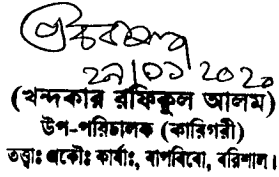 ২৭/০১/২০২০
(খন্দকার রফিকুল আলম)
উপ-পরিচালক (কারিগরী)
তত্ত্বাঃ প্রকৌঃ কার্যাঃ, বাপবিবো, বরিশাল।